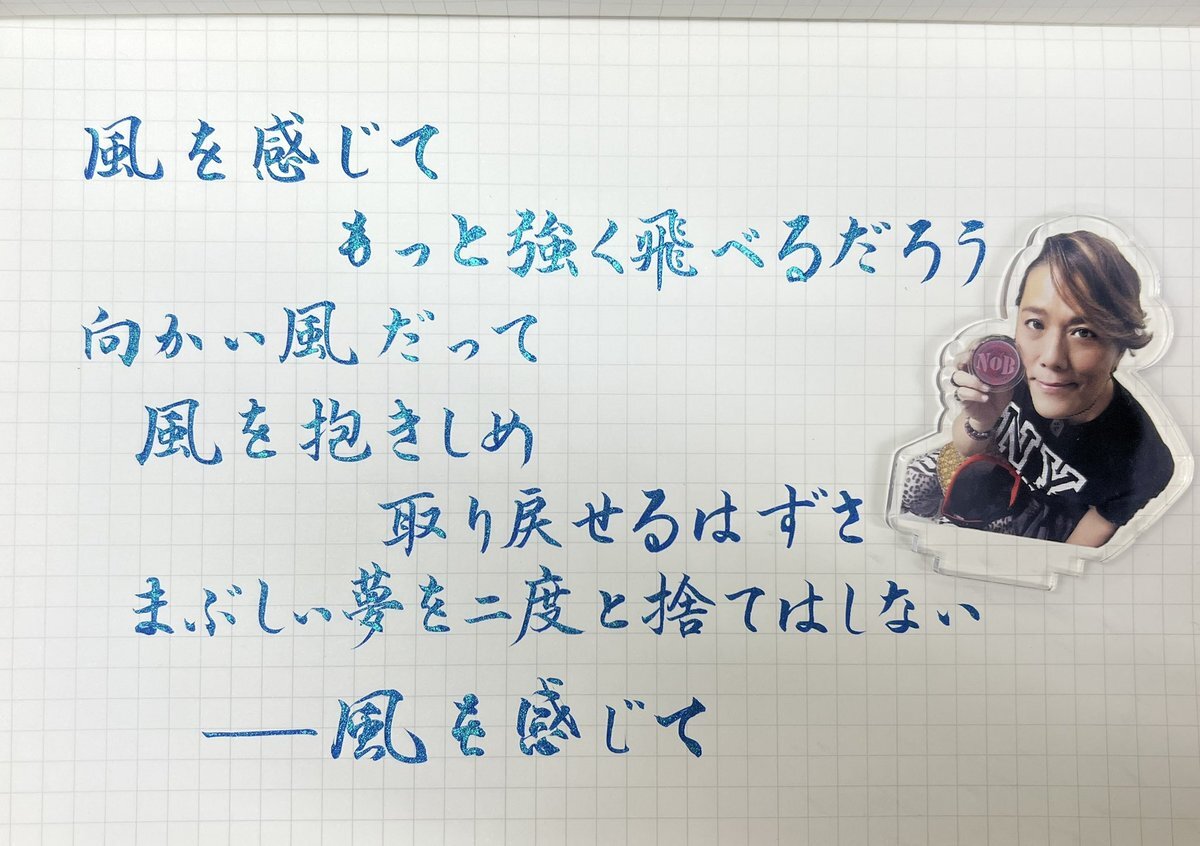 風を感じて
もっと強く飛べるだろう
向かい風だって
風を抱きしめ
取り戻せるはずさ
まぶしい夢を二度と捨てはしない
——風を感じて
NoB
NY